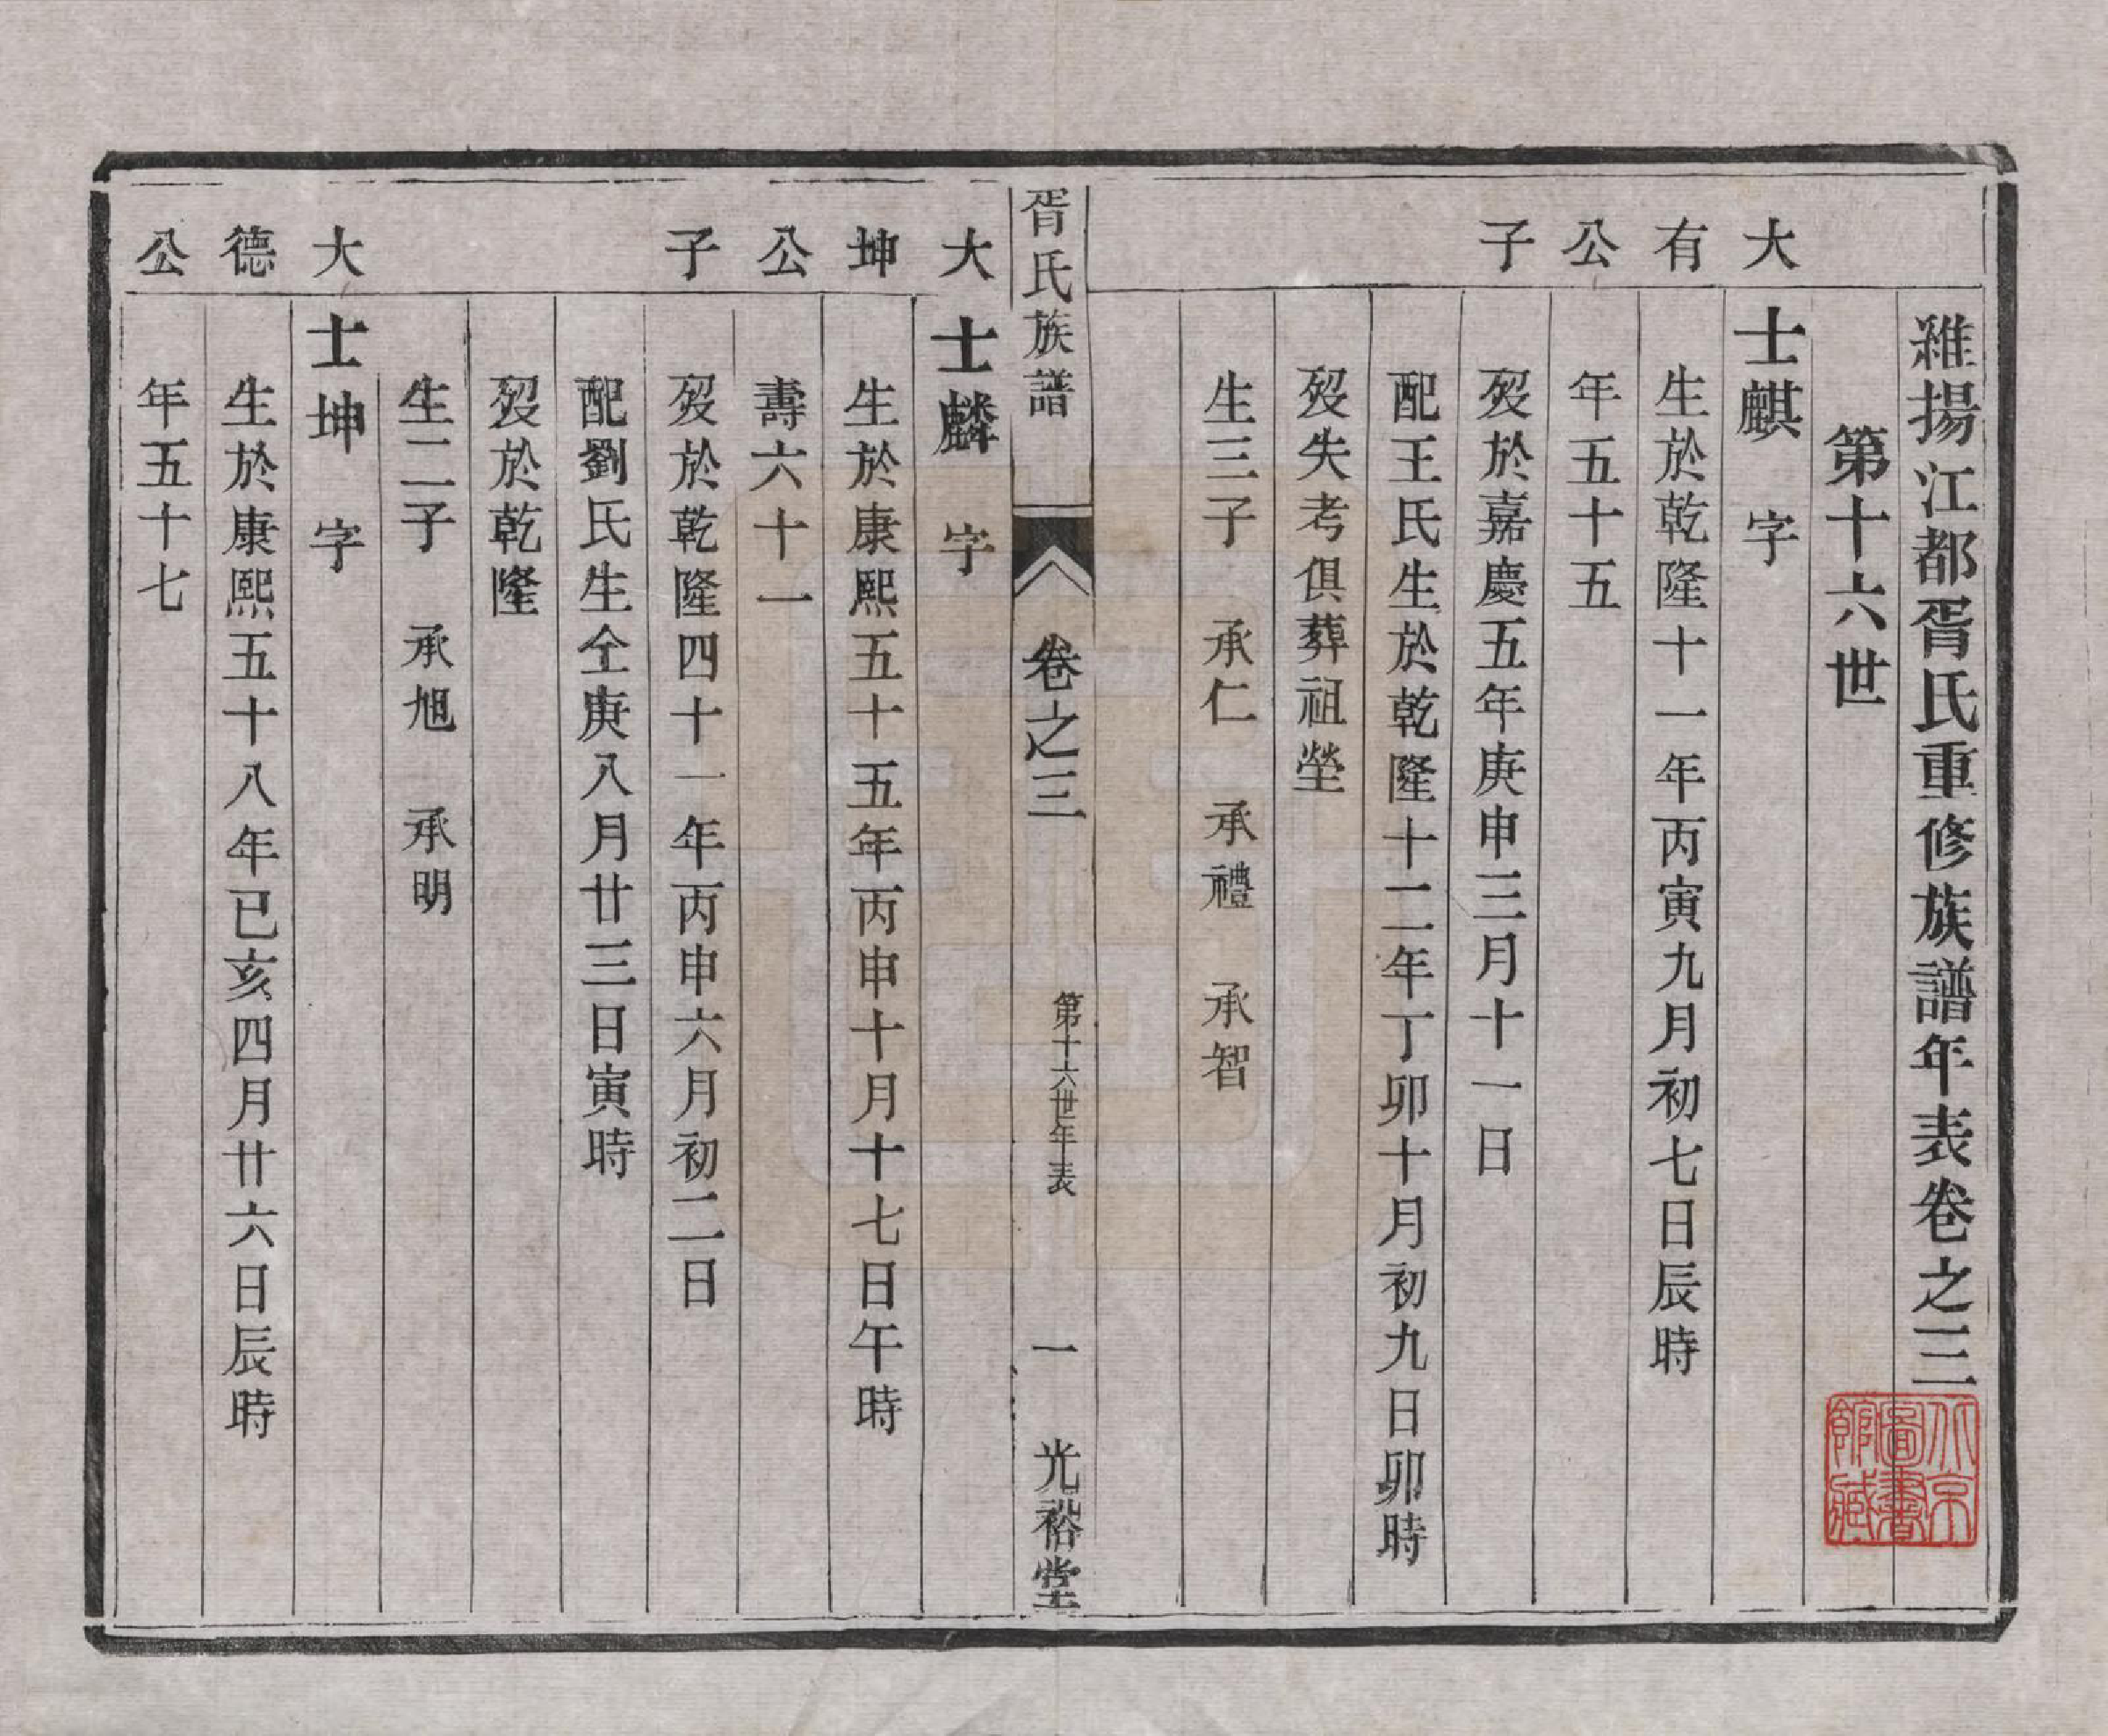 維揚江都胥氏重修族譜年表卷之三
第十六世
大有公子
士麒 字
生於乾隆十一年丙寅九月初七日辰時
年五十五
歿於嘉慶五年庚申三月十一日
配王氏生於乾隆十二年丁卯十月初九日卯時
歿失考俱葬祖塋
生三子 承仁 承禮 承智
胥氏族譜 卷之三 第十六世年表 一 光裕堂
大坤公子
士麟 字
生於康熙五十五年丙申十月十七日午時
壽六十一
歿於乾隆四十一年丙申六月初二日
配劉氏生仝庚八月廿三日寅時
歿於乾隆
生二子 承旭 承明
大德公
士坤 字
生於康熙五十八年已亥四月廿六日辰時
年五十七
北京圖書館藏